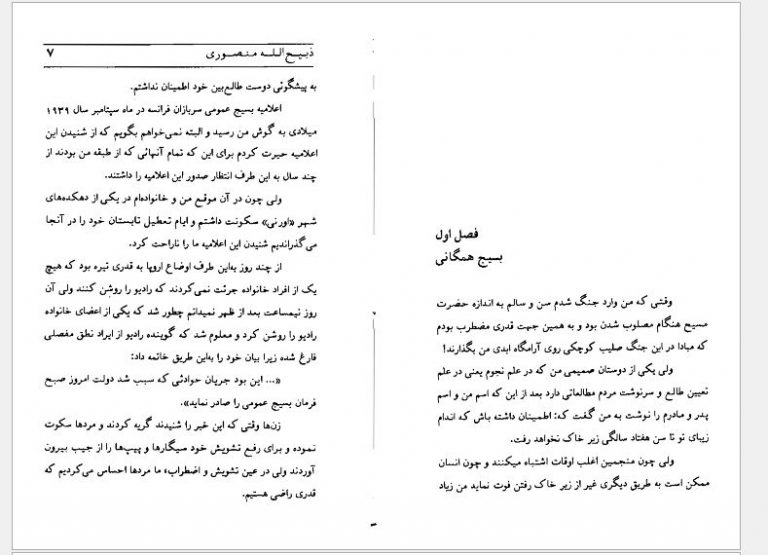 فصل اول
بسیج همگانی
وقتی که من وارد جنگ شدم سن و سالم به اندازه حضرت
مسیح هنگام مصلوب شدن بود و به همین جهت قدری مضطرب بودم
که مبادا در این جنگ صلیب کوچکی روی آرامگاه ابدی من بگذارند!
ولی یکی از دوستان صمیمی من که در علم نجوم یعنی در علم
تعیین طالع و سرنوشت مردم مطالعاتی دارد بعد از این که اسم من و اسم
پدر و مادرم را نوشت به من گفت که: اطمینان داشته باش که اندام
زیبای تو تا سن هفتاد سالگی زیر خاک نخواهد رفت.
ولی چون منجمین اغلب اوقات اشتباه میکنند و چون انسان
ممکن است به طریق دیگری غیر از زیر خاک رفتن فوت نماید من زیاد
ذبیح اللـه منصـوری ۷
به پیشگوئی دوست طالع‌بین خود اطمینان نداشتم.
اعلامیه بسیج عمومی سربازان فرانسه در ماه سپتامبر سال ۱۹۳۹
میلادی به گوش من رسید و البته نمی‌خواهم بگویم که از شنیدن این
اعلامیه حیرت کردم برای این که تمام آنهائی که از طبقه من بودند از
چند سال به این طرف انتظار صدور این اعلامیه را داشتند.
ولی چون در آن موقع من و خانواده‌ام در یکی از دهکده‌های
شهر «اورنی» سکونت داشتم و ایام تعطیل تابستان خود را در آنجا
می‌گذراندیم شنیدن این اعلامیه ما را ناراحت کرد.
از چند روز به‌این طرف اوضاع اروپا به قدری تیره بود که هیچ
یک از افراد خانواده جرئت نمی‌کردند که رادیو را روشن کنند ولی آن
روز نیمساعت بعد از ظهر نمیدانم چطور شد که یکی از اعضای خانواده
رادیو را روشن کرد و معلوم شد که گوینده رادیو از ایراد نطق مفصلی
فارغ شده زیرا بیان خود را به‌این طریق خاتمه داد:
«... این بود جریان حوادثی که سبب شد دولت امروز صبح
فرمان بسیج عمومی را صادر نماید».
زن‌ها وقتی که این خبر را شنیدند گریه کردند و مردها سکوت
نموده و برای رفع تشویش خود سیگارها و پیپ‌ها را از جیب بیرون
آوردند ولی در عین تشویش و اضطراب، ما مردها احساس می‌کردیم که
قدری راضی هستیم.